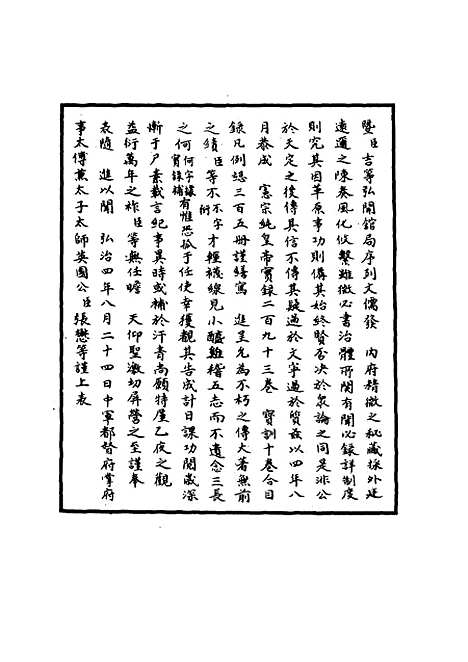 暨臣吉等弘開館局序列文儒發　內府精微之秘藏採外廷
遠邇之陳奏風化攸繫雖微必書治體所関有聞必録詳制度
則究其因革原事功則備其始終賢否决於衆論之同是非公
於天定之後傳其信不傳其疑過於文寧過於質茲以四年八
月恭成　憲宗純皇帝實録二百九十三巻　寳訓十巻合目
録凡例緫三百五册謹繕寫　進呈允為不朽之傳大著無前
之績臣等不不字衍才輕襪線見小醯雞稽五志而不遺念三長
之何何字據實錄補有惟恐孤于任使幸獲觀其告成計日課功閱歲深
慚于尸素載言紀事異時或補於汗青尚願特屋乙夜之觀
益衍萬年之祚臣等無任瞻　天仰聖激切屏營之至謹奉
表隨　進以聞　弘治四年八月二十四日中軍都督府掌府
事太傅兼太子太師英國公臣張懋等謹上表